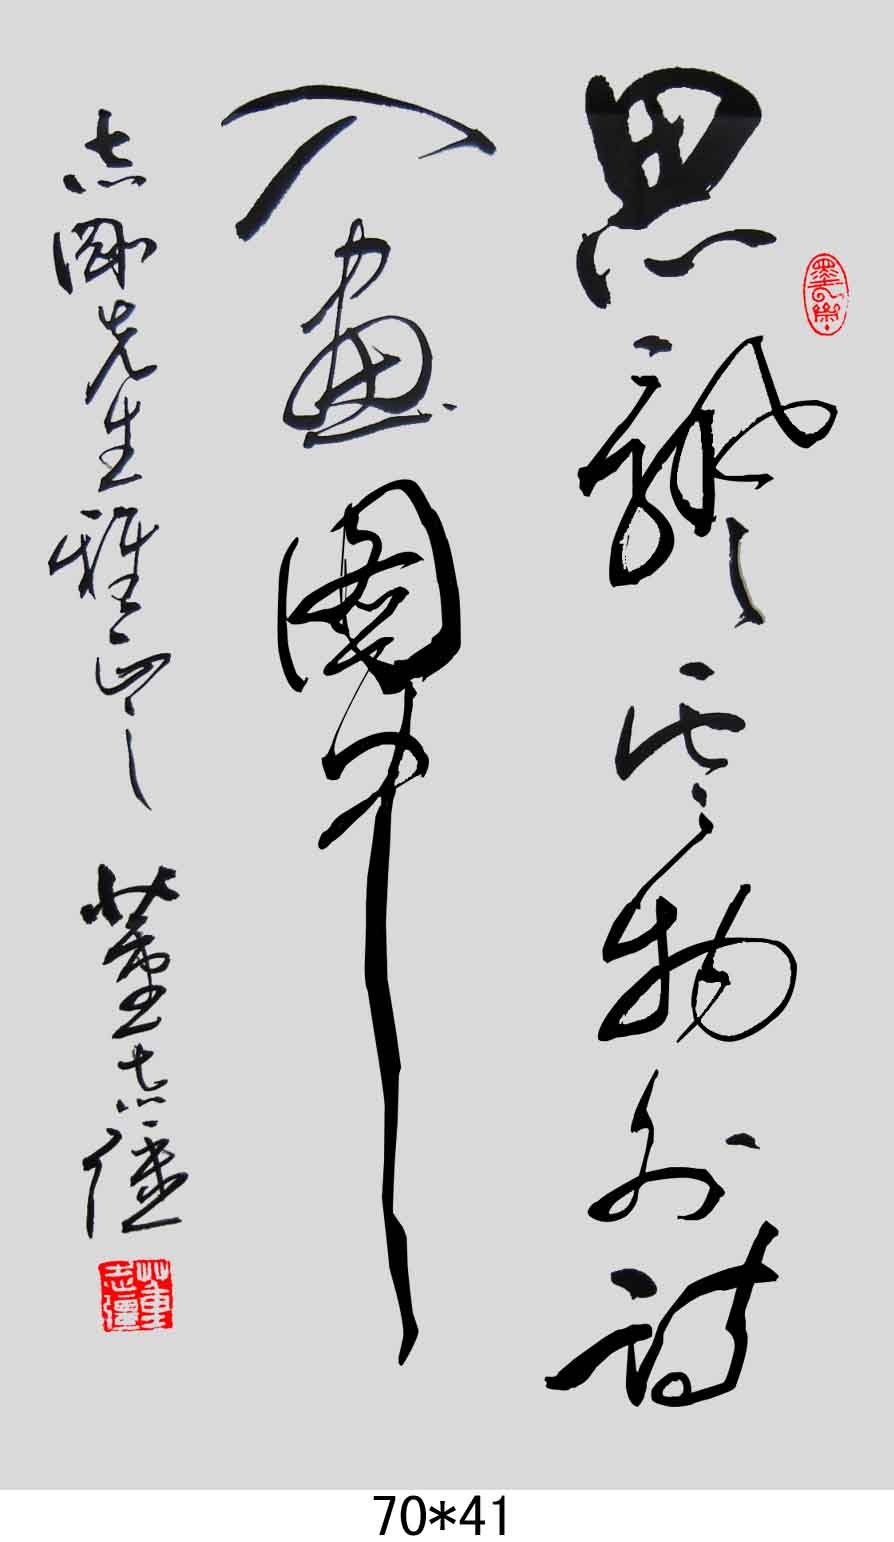 思飘云物外诗
入画图中
志刚先生雅正
董志强
董志疆
70*41